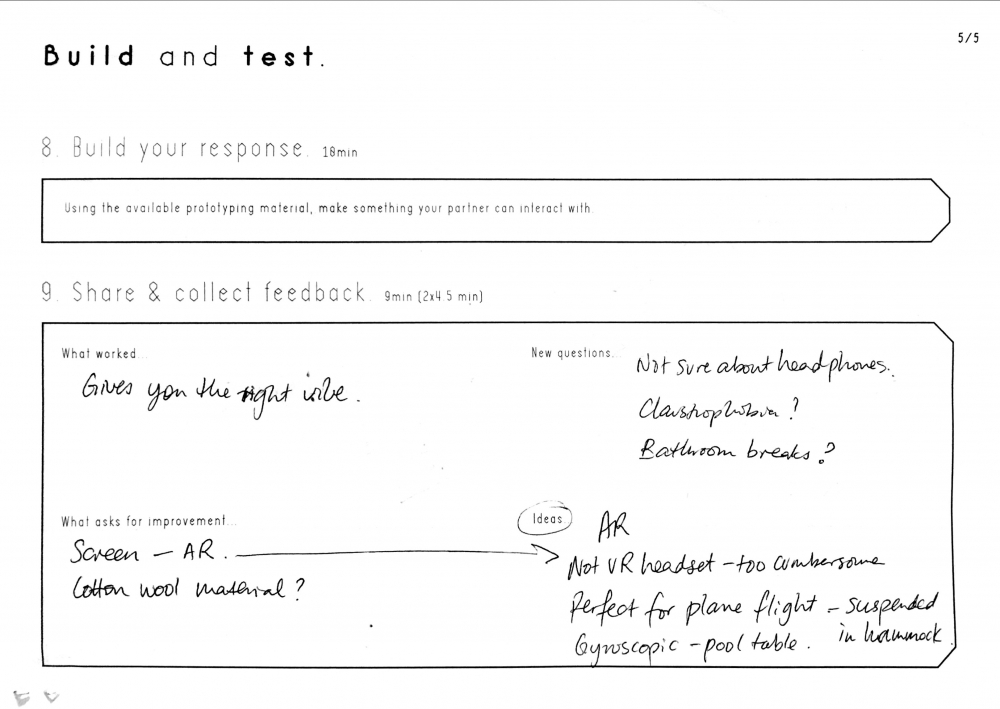 5/5
Build and test.
8. Build your response. 18min
Using the available prototyping material, make something your partner can interact with.
9. Share & collect feedback. 9min (2x4.5 min)
What worked...
Gives you the right vibe.
New questions...
Not sure about headphones.
Claustrophobia?
Bathroom breaks?
What asks for improvement...
Screen – AR.
Cotton wool material?
Ideas...
AR
Not VR headset – too cumbersome
Perfect for plane flight – suspended
in hammock
Gyroscopic – pool table.